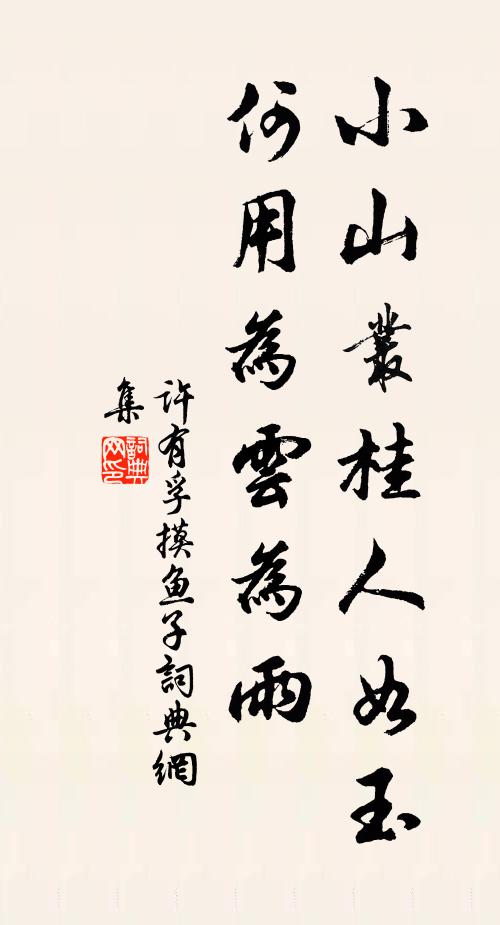 小山叢桂人如玉
何用為雲為雨
許有孚摸鱼子詞典網
集
詞典网印